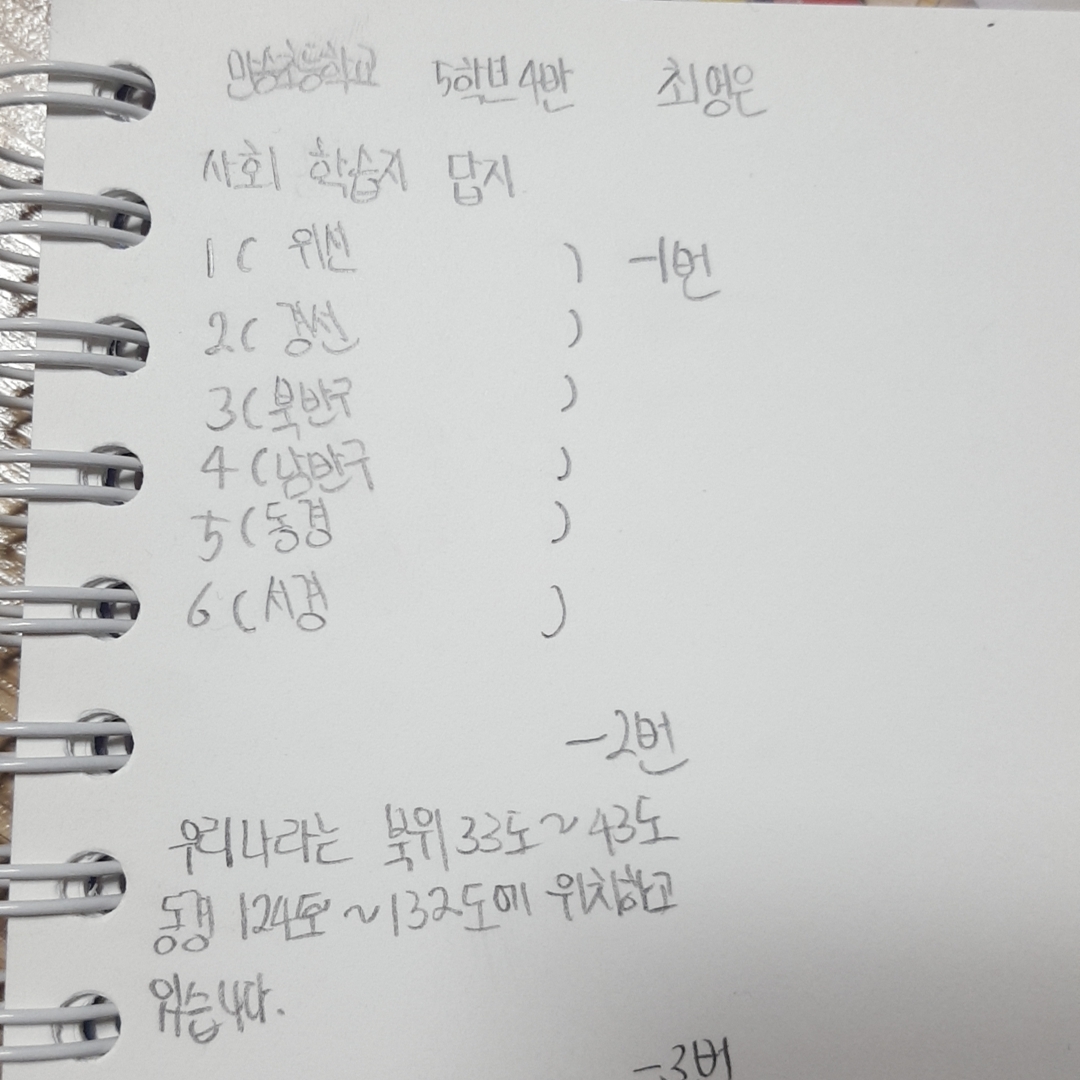 만성초등학교 5학년 4반 최영은
사회 학습지 답지
1 ( 위선 ) -1번
2 ( 경선 )
3 ( 북반구 )
4 ( 남반구 )
5 ( 동경 )
6 ( 서경 )
-2번
우리나라는 북위 33도~43도
동경 124도~132도에 위치하고
있습니다.
-3번